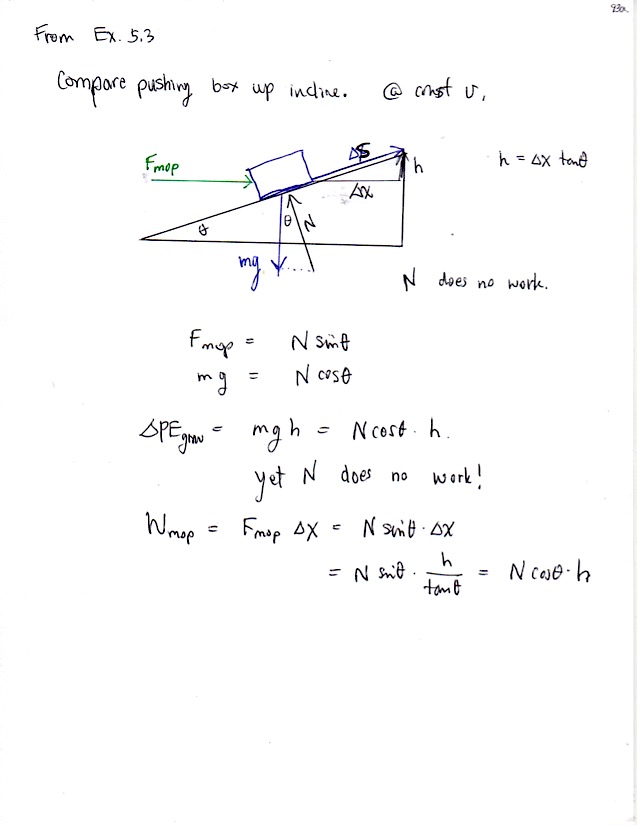 93a.
From Ex. 5.3
Compare pushing box up incline. @ const v.
F_mop
ΔS
h
h = Δx tanθ
Δx
θ
θ
N
mg
N does no work.
F_mop = N sinθ
mg = N cosθ
ΔPE_grav = mgh = N cosθ · h.
yet N does no work!
W_mop = F_mop Δx = N sinθ · Δx
= N sinθ · h/tanθ = N cosθ · h